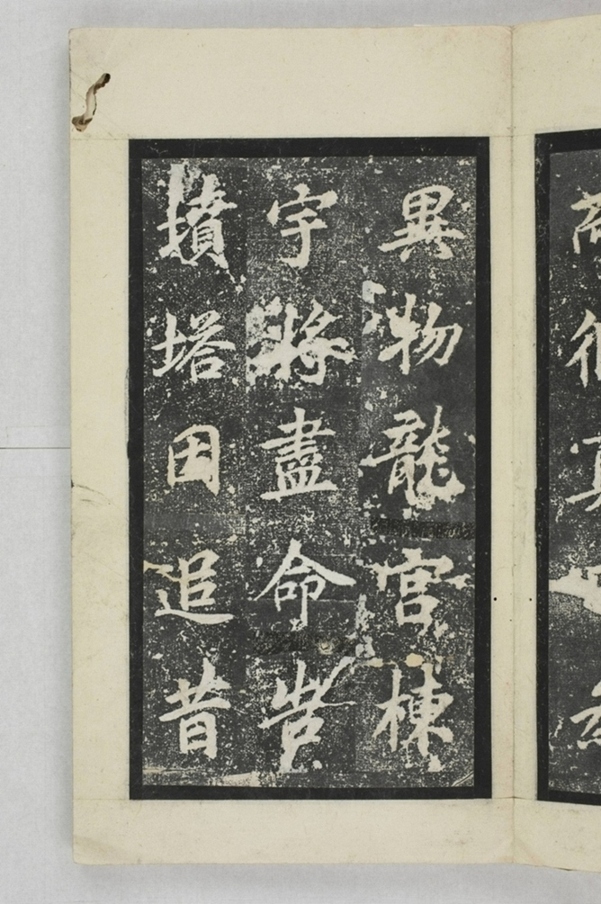 異物龍宮棟
宇將盡命
墳塔因追昔